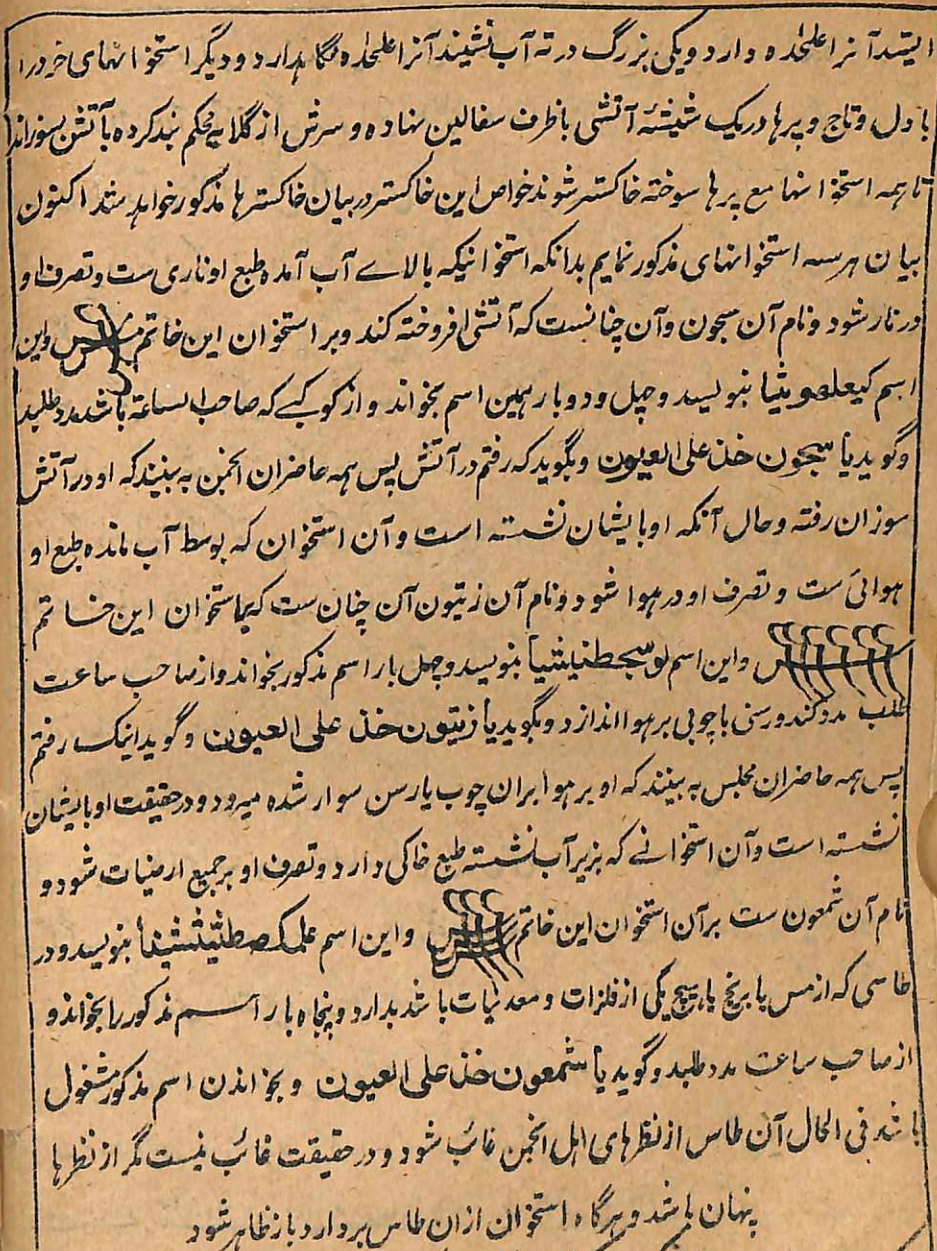 ایستد آنرا علحٰده دارد ویکی بزرگ در ته آب نشیند آنرا علحٰده نگاہدارد و دیگر استخوانهای خرد را
با دل وتاج و پرها در یک شیشۂ آتشی یا ظرف سفالین نهاده و سرش از گلابه محکم بند کرده بآتش بسوزاند
تا ہمه استخوانها مع پرها سوخته خاکستر شوند خواص این خاکستر در بیان خاکسترها مذکور خواہد شد اکنون
بیان ہرسه استخوانهای مذکور نمایم بدانکه استخوانیکه بالاے آب آمده طبع او ناری ست و تصرف او
در نار شود و نام آن سجون و آن چنانست که آتشی افروخته کند و بر استخوان این خاتم واین
اسم بنویسد و چهل و دو بار ہمین اسم بخواند و از کوکبے که صاحب الساعة باشد مدد طلبد
وگوید یا سجون خذ علی العیون و بگوید که رفتم در آتش پس ہمه حاضران انجمن به بینند که او در آتش
سوزان رفته و حال آنکه او با یشان نشسته است و آن استخوان که بوسط آب مانده طبع او
ہوائی ست و تصرف او در ہوا شود و نام آن زیتون آن چنان ست که باستخوان این خاتم
واین اسم بنویسد و چهل بار اسم مذکور بخواند و از صاحب ساعت
طلب مدد کند و رسنی یا چوبی بر ہوا اندازد و بگوید یا زیتون خذ علی العیون و گوید اینک رفتم
پس ہمه حاضران مجلس به بینند که او بر ہوا بران چوب یا رسن سوار شده میرود و در حقیقت او با یشان
نشسته است و آن استخوانے که بزیر آب نشسته طبع خاکی دارد و تصرف او بر جمیع ارضیات شود و
نام آن شمعون ست بر آن استخوان این خاتم واین اسم بنویسد و در
طاسی که از مس یا برنج یا ہیچ یکی از فلزات و معدنیات باشد بدارد و پنجاه بار اسم مذکور را بخواند و
از صاحب ساعت مدد طلبد و گوید یا شمعون خذ علی العیون و بخواندن اسم مذکور مشغول
باشد فی الحال آن طاس از نظرهای اہل انجمن غائب شود و در حقیقت غائب نیست مگر از نظرها
پنهان باشد و ہرگاه استخوان ازان طاس بردارد باز ظاہر شود